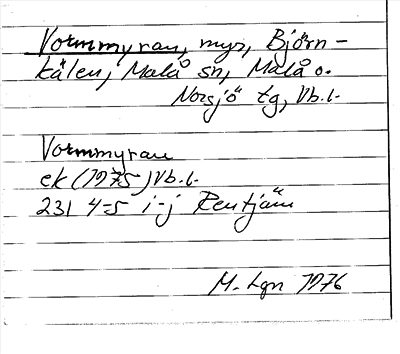 Vormmyran, myr, Björn-
kålen, Malå sn, Malå o.
Norsjö tg, Vb.l.
Vormmyran
ek (1975) Vb.l.
231 4-5 i-j Rentjärn
M. Lgn 1976